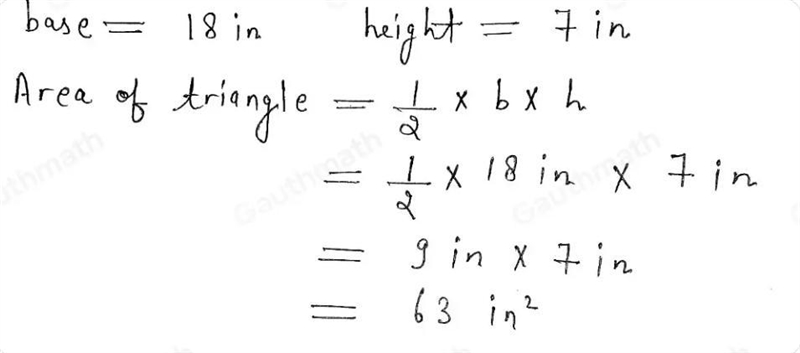 base = 18 in height = 7 in
Area of triangle = 1/2 × b × h
= 1/2 × 18 in × 7 in
= 9 in × 7 in
= 63 in²
Gauthmath
Gauthmath